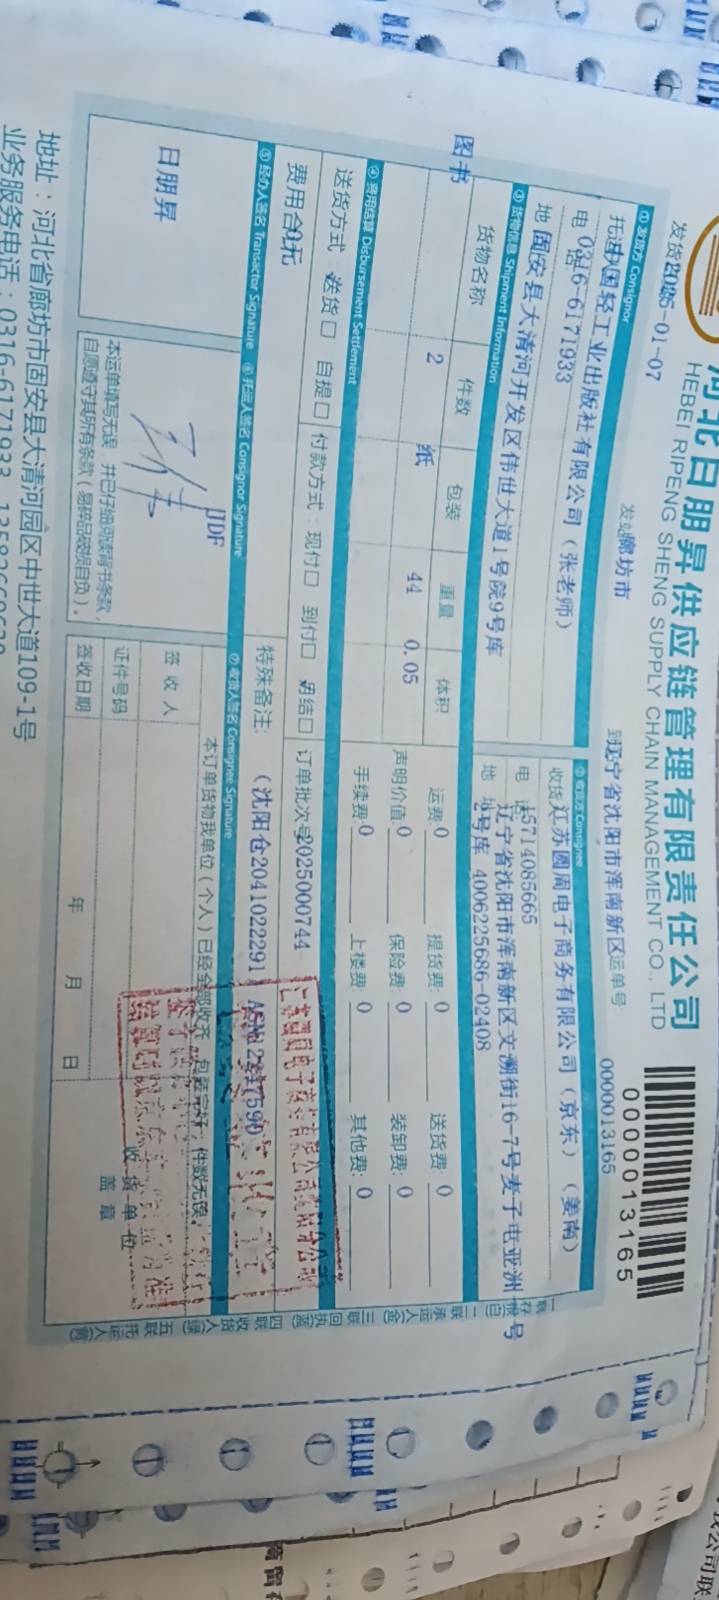 河北日朋昇供应链管理有限责任公司
HEBEI RIPENG SHENG SUPPLY CHAIN MANAGEMENT CO., LTD
0000013165
发货 2025-01-07
发站 廊坊市
到 辽宁省沈阳市浑南新区
运单号 0000013165
① 发货方 Consignor
托运 中国轻工业出版社有限公司（张老师）
电 话 0316-6171933
地 固安县大清河开发区伟世大道1号院9号库
② 收货方 Consignee
收货 江苏圆周电子商务有限公司（京东）（姜南）
电 话 15714085665
地 址 辽宁省沈阳市浑南新区文溯街16-7号麦子屯亚洲一号
2号库 4006225686-02408
③ 货物信息 Shipment Information
货物名称 件数 包装 重量 体积
图书 2 纸 44 0.05
运费: 0 提货费: 0 送货费: 0
声明价值: 0 保险费: 0 装卸费: 0
手续费: 0 上楼费: 0 其他费: 0
④ 费用结算 Disbursement Settlement
送货方式: 送货□ 自提□ 付款方式: 现付□ 到付□ 月结□ 订单批次号 2025000744
费用合 0元
特殊备注: （沈阳仓2041022291）
⑤ 经办人签名 Transactor Signature
⑥ 托运人签名 Consignor Signature
⑦ 收货人签名 Consignee Signature
日朋昇
JDF
本运单填写无误，并已仔细阅读背书条款，
自愿遵守其所有条款（易碎品破损自负）。
本订单货物我单位（个人）已经全部收齐，包装完好，件数无误
签收人
证件号码
签收日期 年 月 日
收货单位
盖章
一联存根(白) 二联承运人(金) 三联回执(蓝) 四联收货人(绿) 五联托运人(黄)
地址：河北省廊坊市固安县大清河园区中世大道109-1号
业务服务电话：0316-6171933